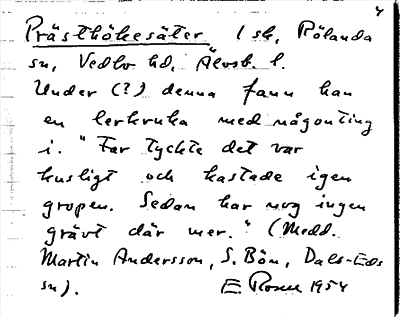 4
Prästbökesäter (sk, Rölanda
sn, Vedbo hd, Älvsb. l.
Under (?) denna fann han
en lerkruka med någonting
i. "Far tyckte det var
kusligt och kastade igen
gropen. Sedan har nog ingen
grävt där mer." (Medd.
Martin Andersson, S. Bön, Dals-Eds
sn). E. Rosen 1954